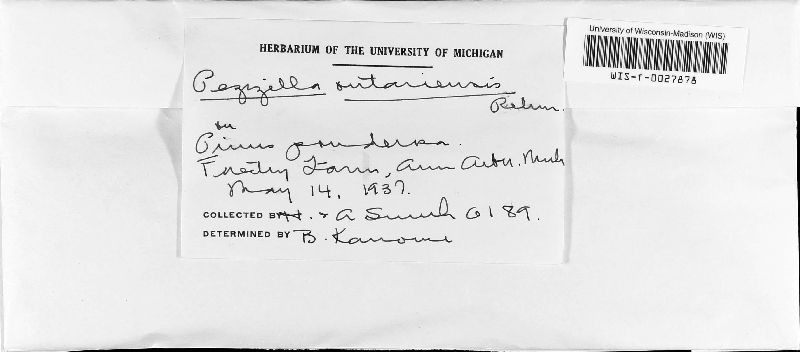 HERBARIUM OF THE UNIVERSITY OF MICHIGAN
University of Wisconsin-Madison (WIS)
WIS-f-0027878
Pezizella ontariensis
Rehm.
on
Pinus ponderosa.
Farm, Ann Arbor. Mich
May 14, 1937.
COLLECTED BY H. & A Smith 6189.
DETERMINED BY B. Kanouse